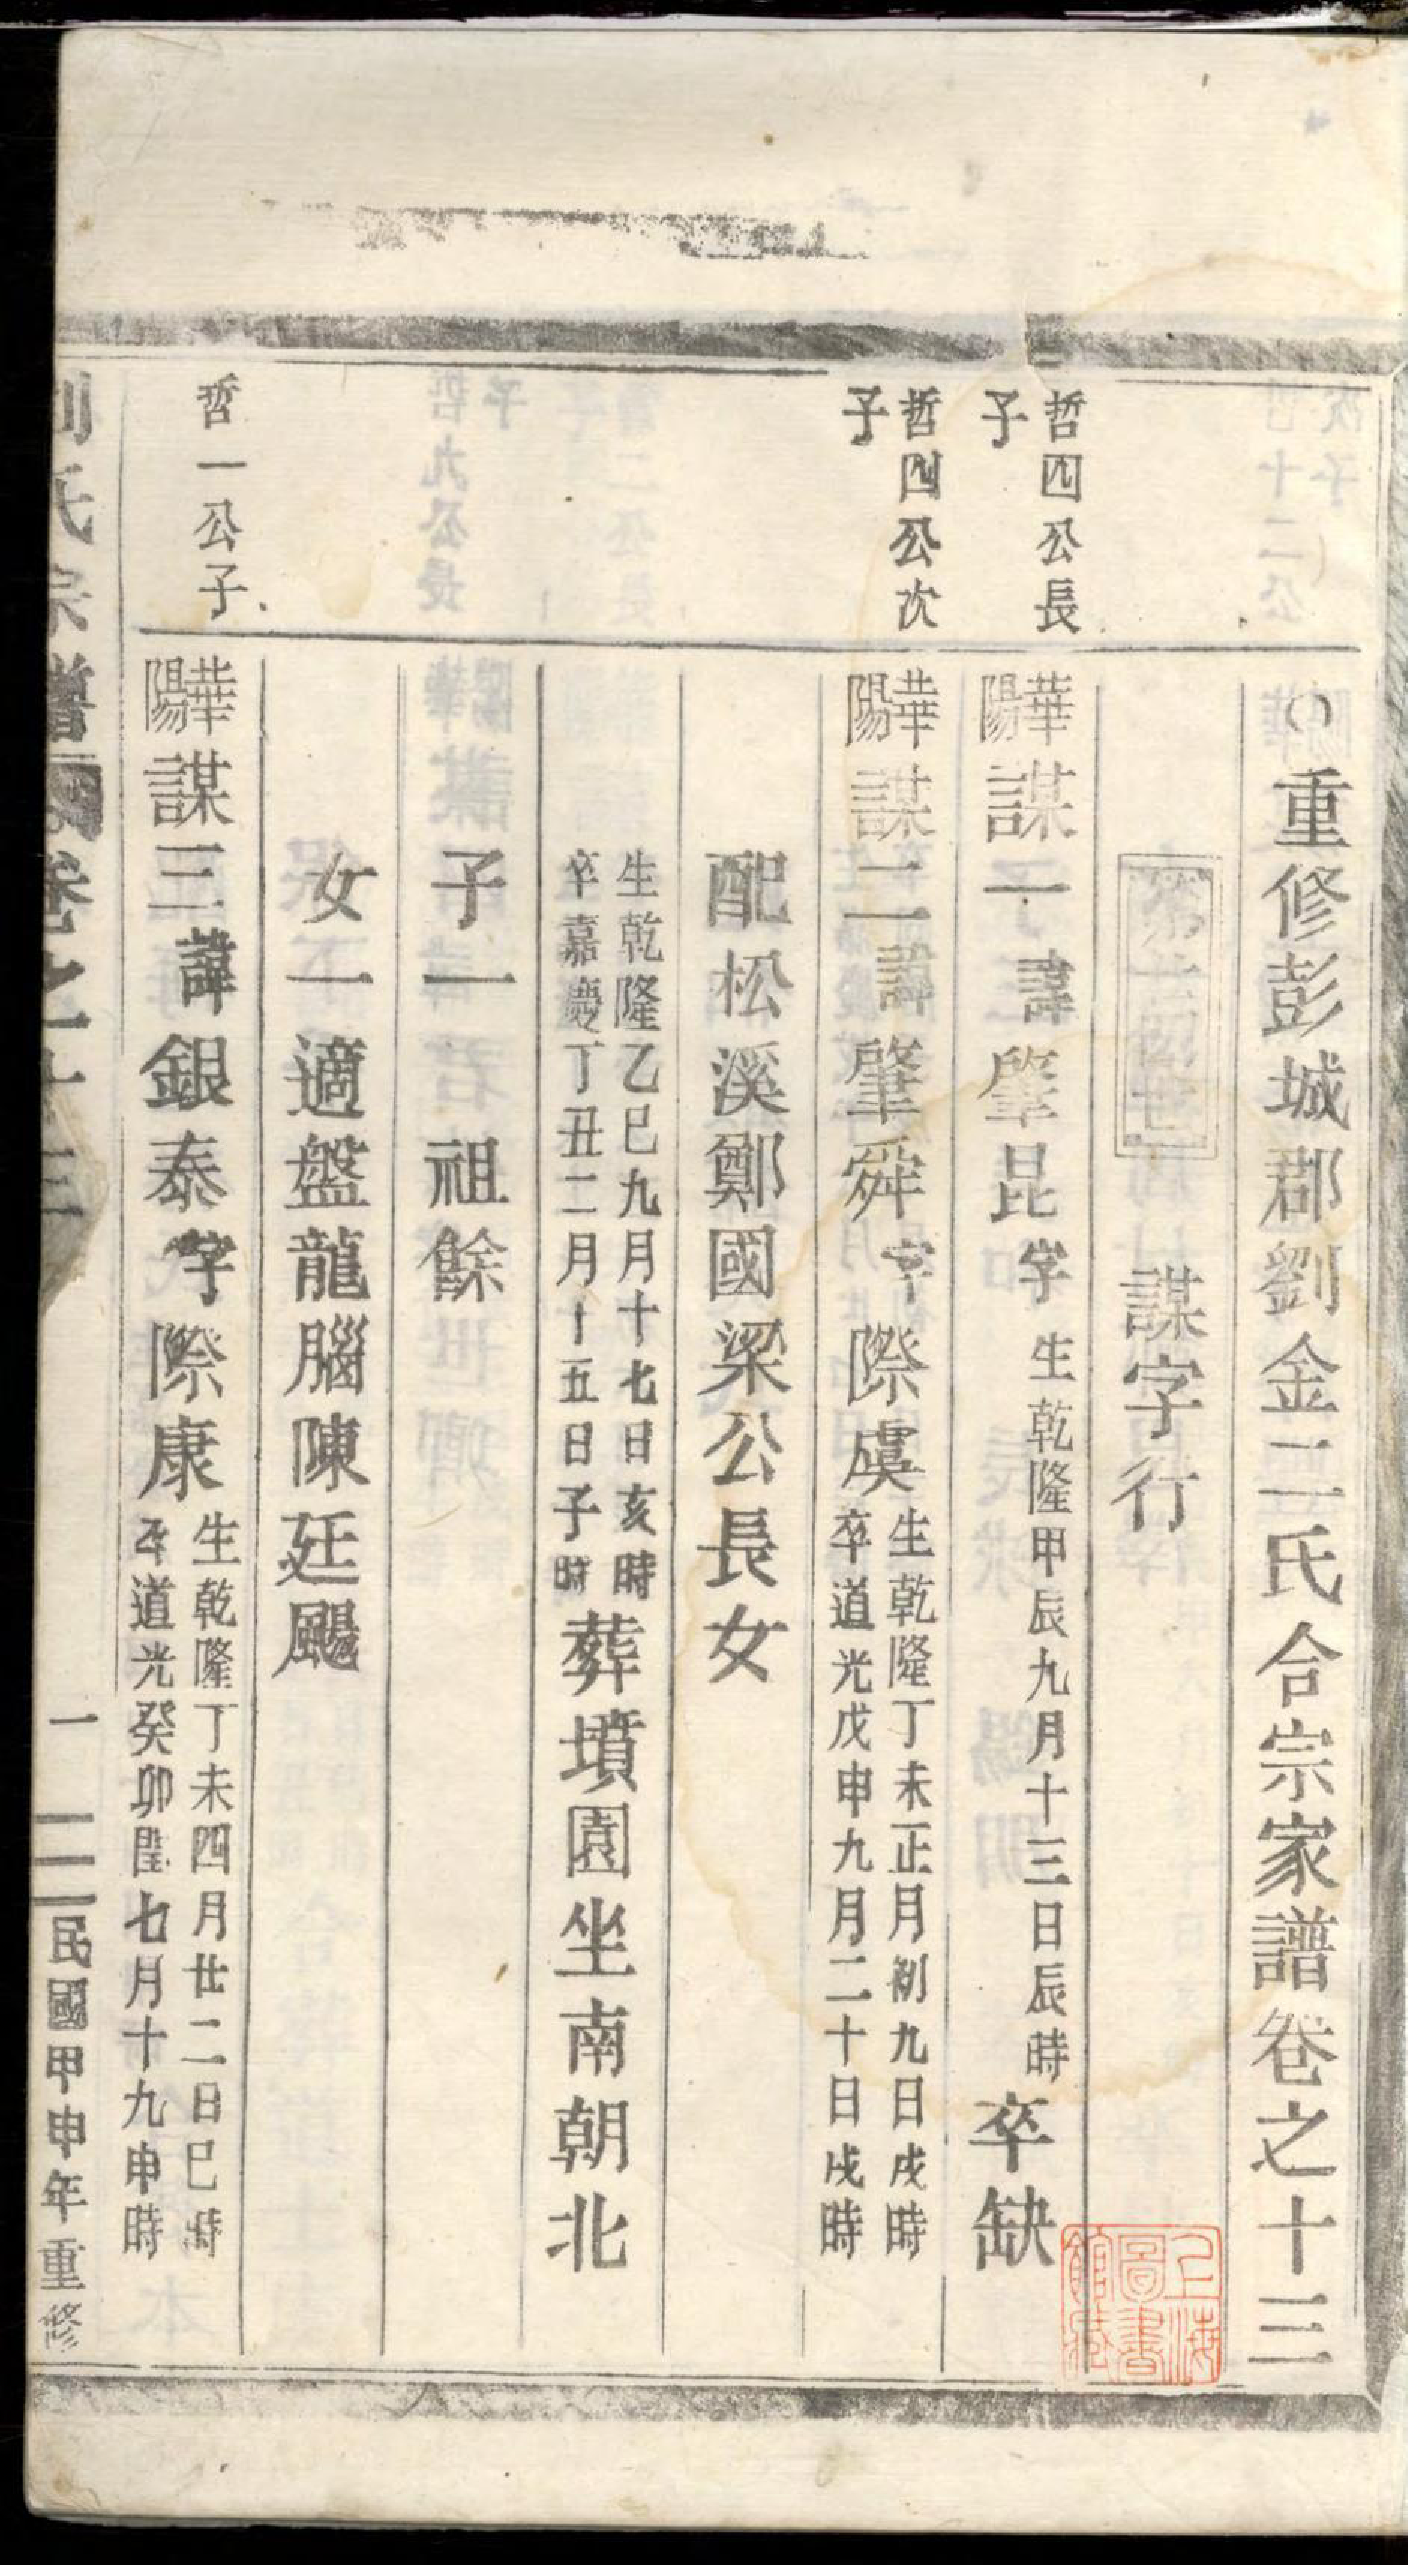 ○重修彭城郡劉金二氏合宗家譜卷之十三
謀字行
哲四公長
子
華陽謀一諱肇昆字生乾隆甲辰九月十三日辰時卒缺
哲四公次
子
華陽謀二諱肇舜字際虞生乾隆丁未正月初九日戌時
卒道光戊申九月二十日戌時
配松溪鄭國梁公長女
生乾隆乙巳九月十七日亥時
卒嘉慶丁丑二月十五日子時葬墳園坐南朝北
子一 祖餘
女一適盤龍腦陳廷颺
哲一公子
華陽謀三諱銀泰字際康生乾隆丁未四月廿二日巳時
卒道光癸卯閏七月十九申時
劉氏宗譜 卷之十三 一 民國甲申年重修
上海圖書館藏